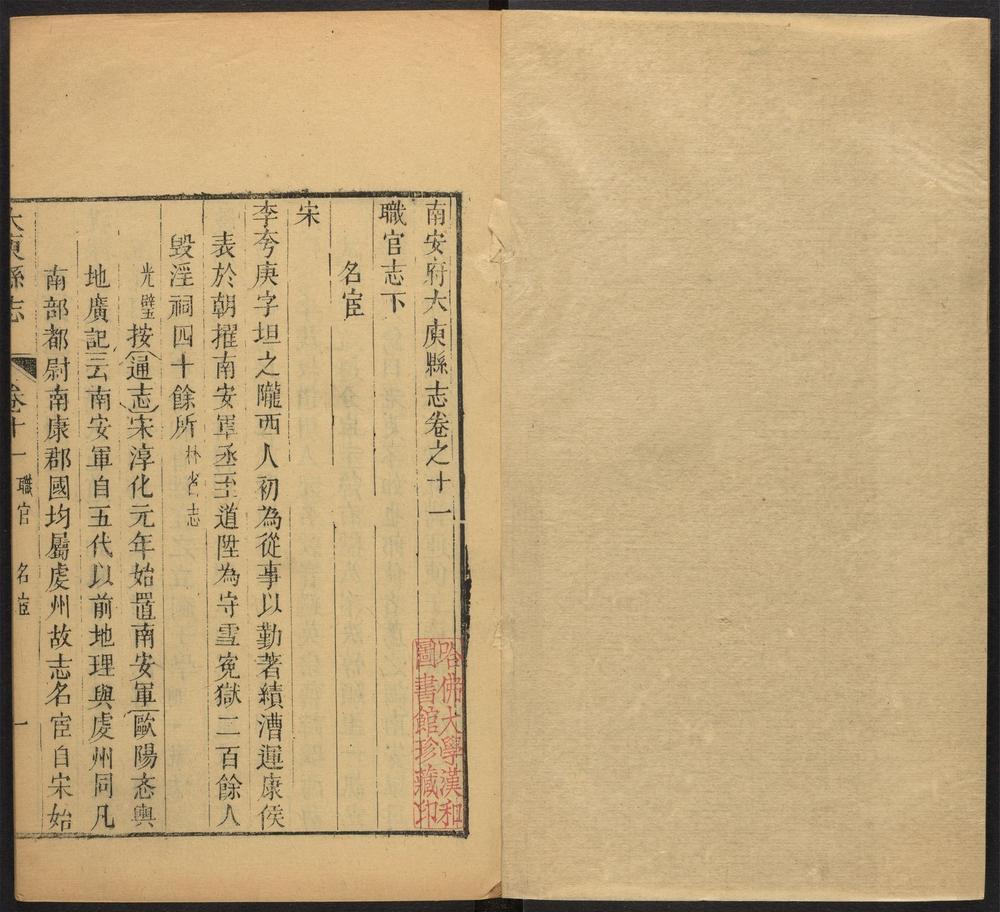 南安府大庾縣志卷之十一
職官志下
名宦
宋
李夸庚字坦之隴西人初為從事以勤著績漕運康侯
表於朝擢南安軍丞至道陞為守雪寃獄二百餘人
毀淫祠四十餘所林省志
光璧按通志宋淳化元年始置南安軍歐陽忞輿
地廣記云南安軍自五代以前地理與虔州同凡
南部都尉南康郡國均屬虔州故志名宦自宋始
大庾縣志 卷十一 職官 名宦 一
哈佛大學漢和
圖書館珍藏印